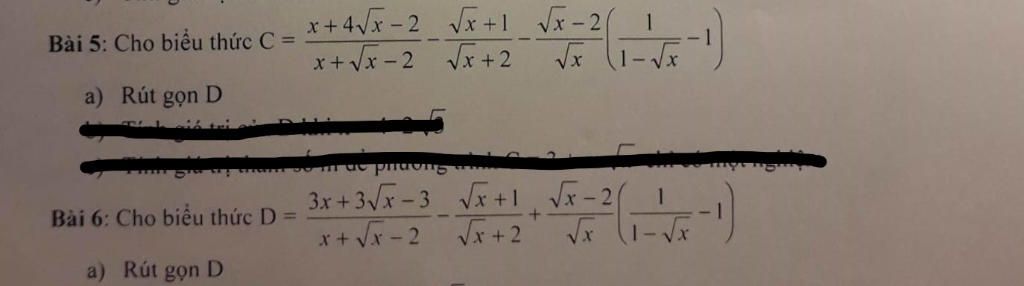 Bài 5: Cho biểu thức C = \frac{x+4\sqrt{x}-2}{x+\sqrt{x}-2} - \frac{\sqrt{x}+1}{\sqrt{x}+2} - \frac{\sqrt{x}-2}{\sqrt{x}}\left(\frac{1}{1-\sqrt{x}}-1\right)
a) Rút gọn D
Bài 6: Cho biểu thức D = \frac{3x+3\sqrt{x}-3}{x+\sqrt{x}-2} - \frac{\sqrt{x}+1}{\sqrt{x}+2} + \frac{\sqrt{x}-2}{\sqrt{x}}\left(\frac{1}{1-\sqrt{x}}-1\right)
a) Rút gọn D